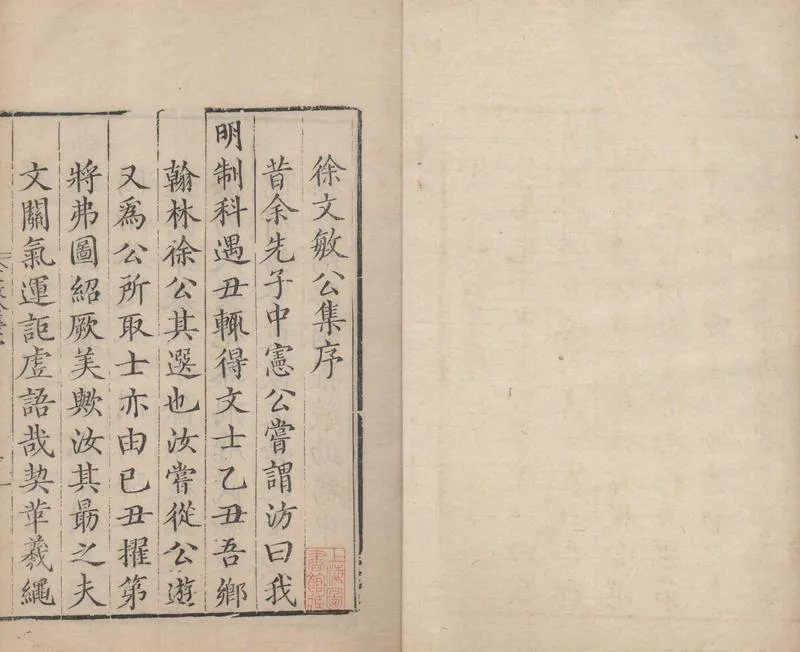 徐文敏公集序
昔余先子中憲公嘗謂汸曰我
明制科遇丑輒得文士乙丑吾鄉
翰林徐公其選也汝嘗從公遊
又爲公所取士亦由己丑擢第
將弗圖紹厥美歟汝其勗之夫
文關氣運詎虛語哉契葦羲繩
上海圖
書館藏